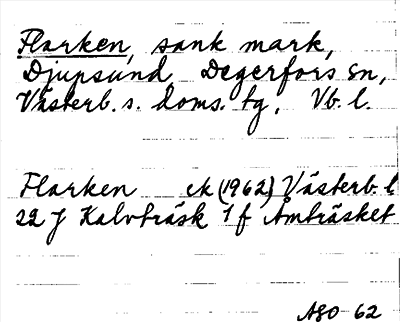 Flarken, sank mark,
Djupsund Degerfors sn,
Västerb. s. doms. tg, Vb. l.
Flarken ek (1962) Västerb. l
22 J Kalvträsk 1 f Åmträsket
ASO 62